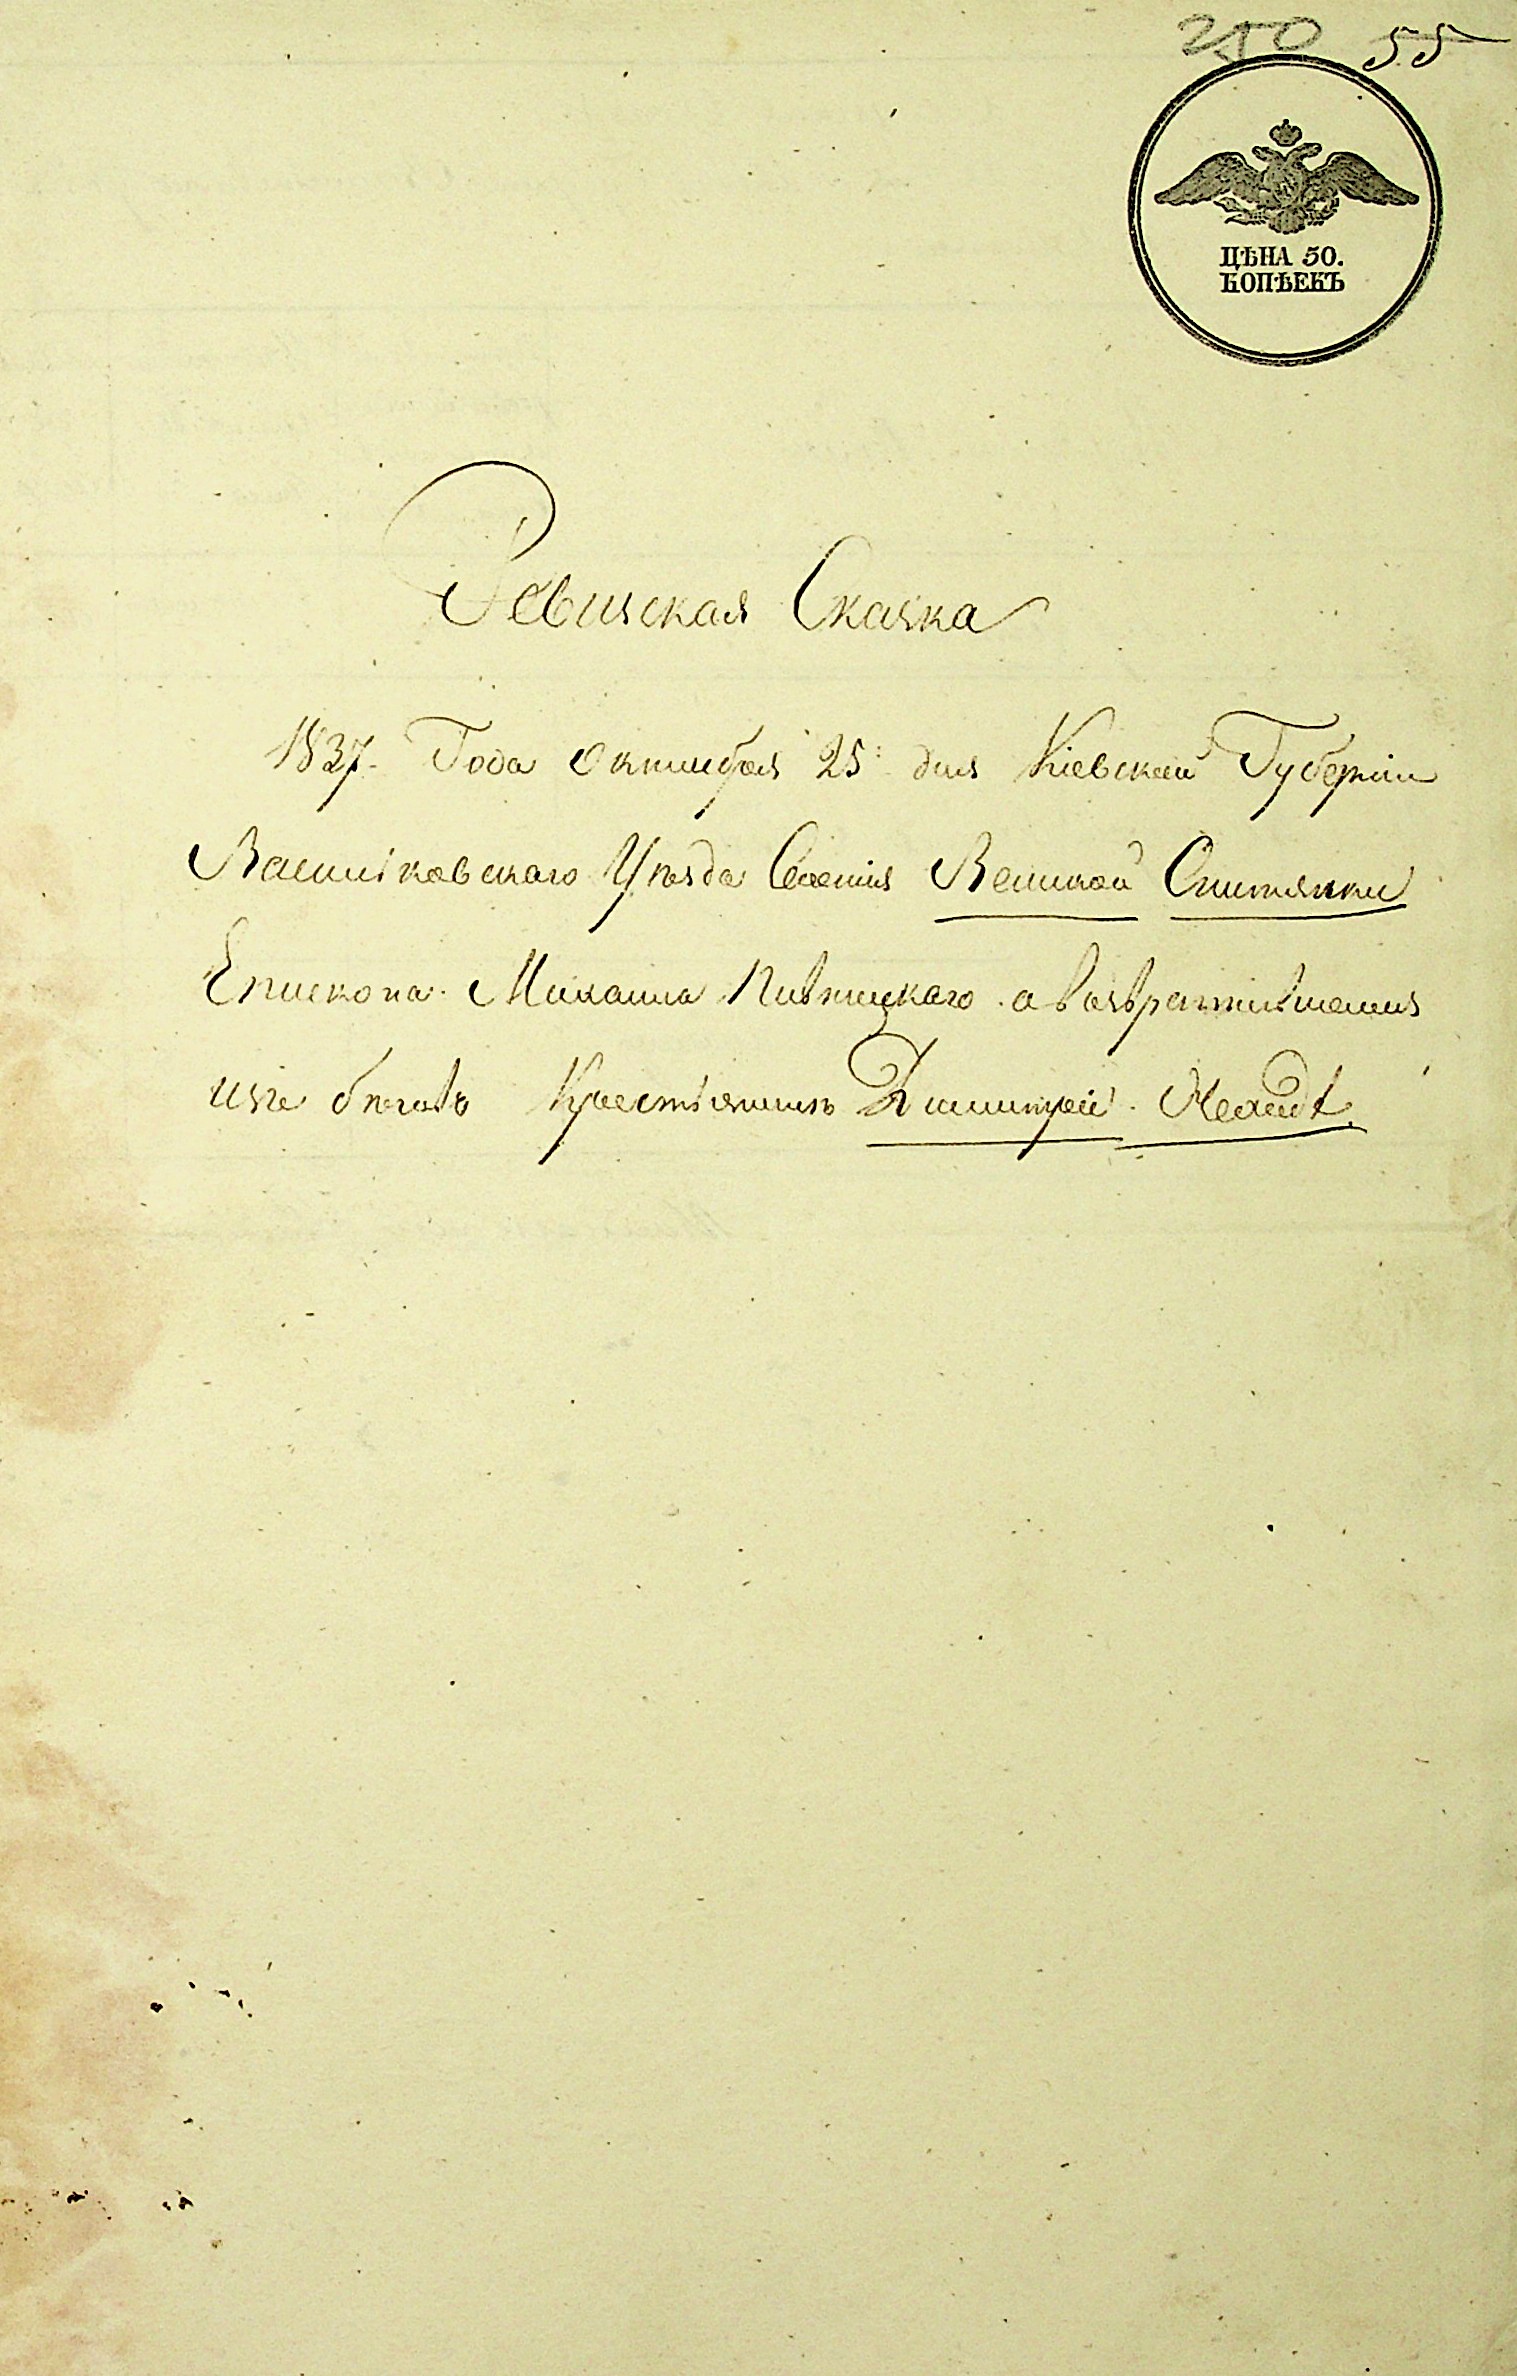 250 55
ЦѢНА 50.
КОПѢЕКЪ
Ревизская Сказка
1837. Года Октября 25: дня Кіевской Губерніи
Василковскаго Уѣзда Селенія Великой Снитинки
Епископа Михаила Пивницкаго о возвратившемся
изъ бѣговъ Крестьянинѣ Димитрій